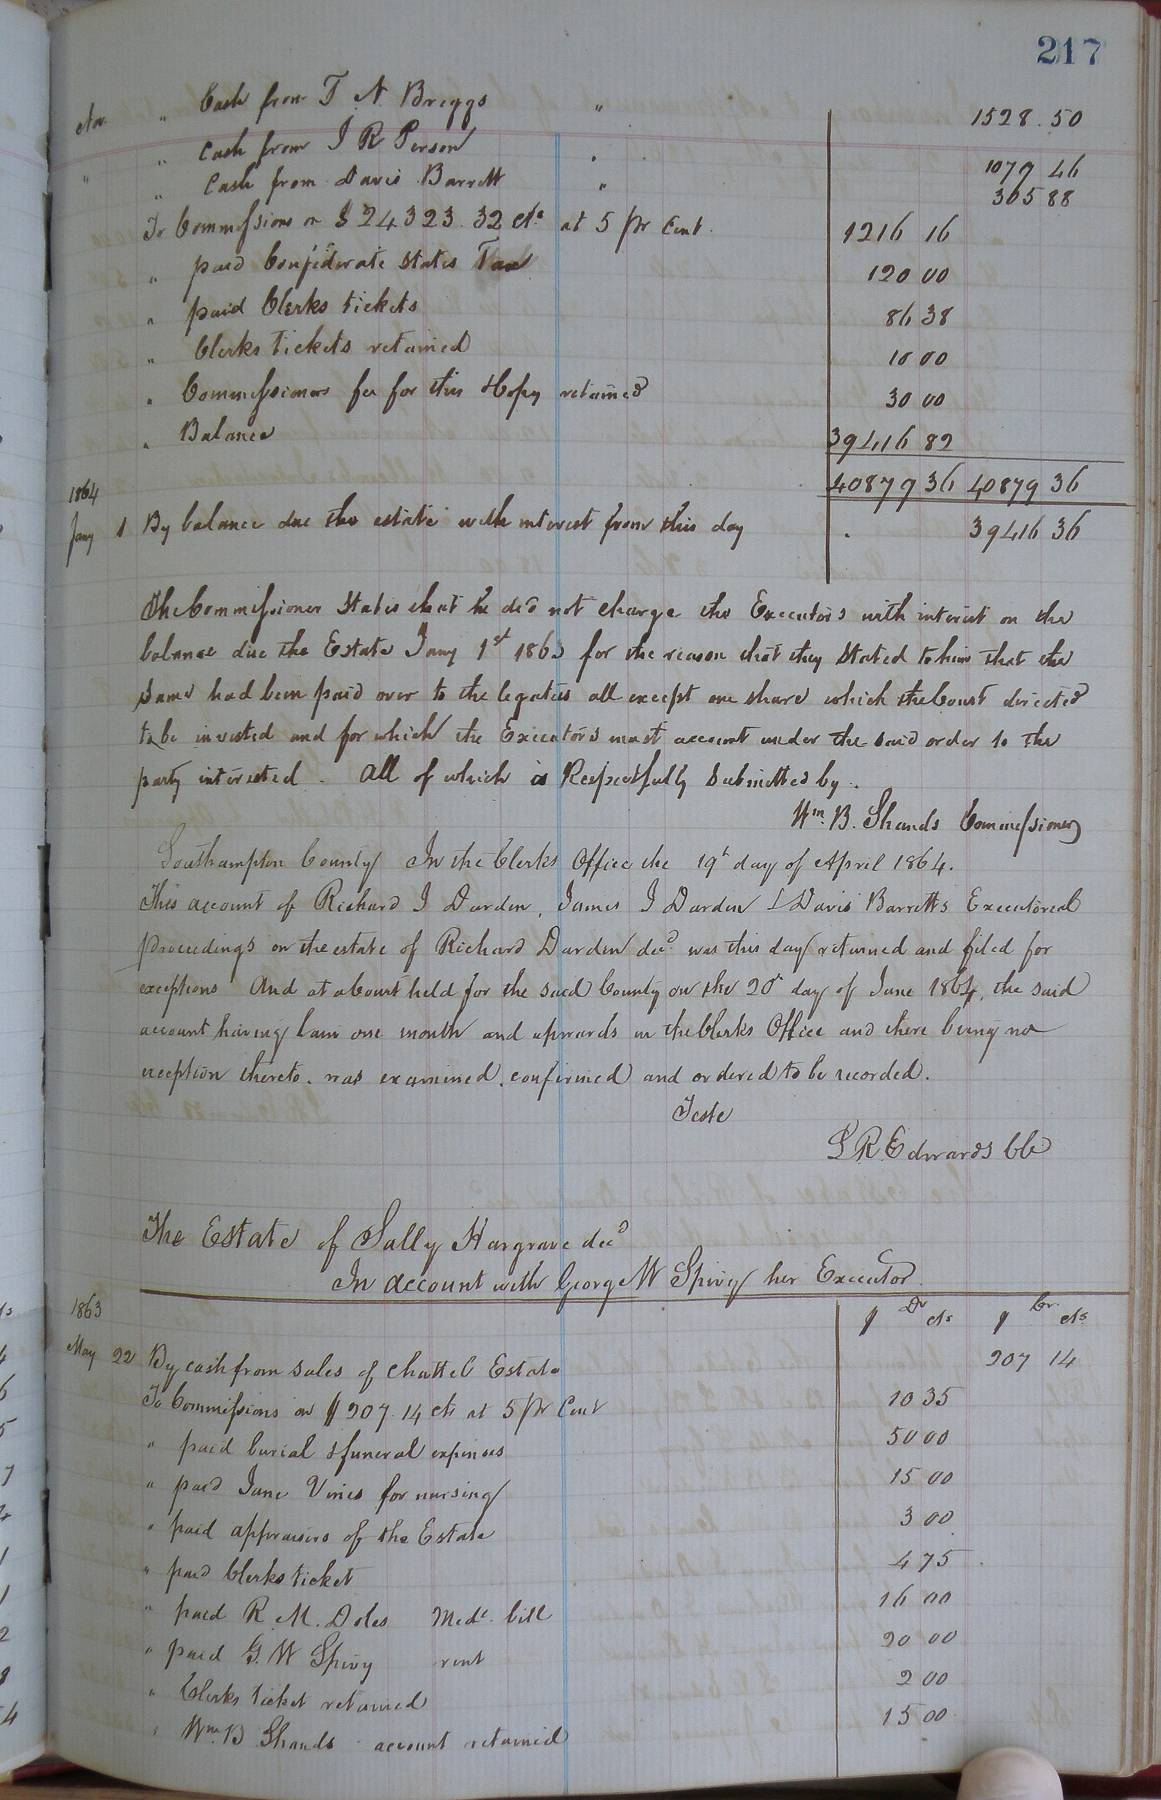 217
Nov. " Cash from T. N. Briggs " 1528.50
" Cash from J R Person " 1079 46
" " Cash from Davis Barrett " 365 88
To Commissions on $24323.32 cts at 5 pr Cent. 1216 16
" paid Confederate States Tax 120 00
" paid Clerks tickets 86 38
" Clerks Tickets retained 10 00
" Commissioners fee for this & Copy retained 30 00
" Balance 39416 82
1864 40879 36 40879 36
Jany 1 By balance due the estate with interest from this day 39416 36
The Commissioner States that he did not charge the Executors with interest on the
balance due the Estate Jany 1st 1863 for the reason that they Stated to him that the
same had been paid over to the legatees all except one share which the Court directed
to be invested and for which the Executors must account under the said order to the
party interested. All of which is Respectfully submitted by.
Wm. B. Shands Commissioner
Southampton County In the Clerks Office the 19th day of April 1864.
This account of Richard J Darden, James J Darden & Davis Barretts Executorial
proceedings on the estate of Richard Darden decd was this day returned and filed for
exceptions And at a Court held for the said County on the 20th day of June 1864, the said
account having lain one month and upwards in the Clerks Office and there being no
exception thereto. was examined, confirmed and ordered to be recorded.
Teste
L R Edwards CC
The Estate of Sally Hargrave decd
In account with George W Spivy her Executor.
1863 $ Dr cts $ Cr cts
May 22 By cash from sales of Chattel Estate 207 14
To Commissions on $207.14 cts at 5 pr Cent 10 35
" paid burial & funeral expenses 50 00
" paid Jane Vines for nursing 15 00
" paid appraisers of the Estate 3 00
" paid Clerks ticket 4 75
" paid R. M. Doles Medl. bill 16 00
" paid G. W Spivy rent 20 00
" Clerks ticket retained 2 00
" Wm. B Shands account retained 15 00